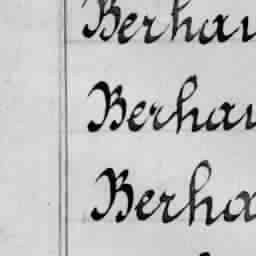 Berhau
Berhau
Berha